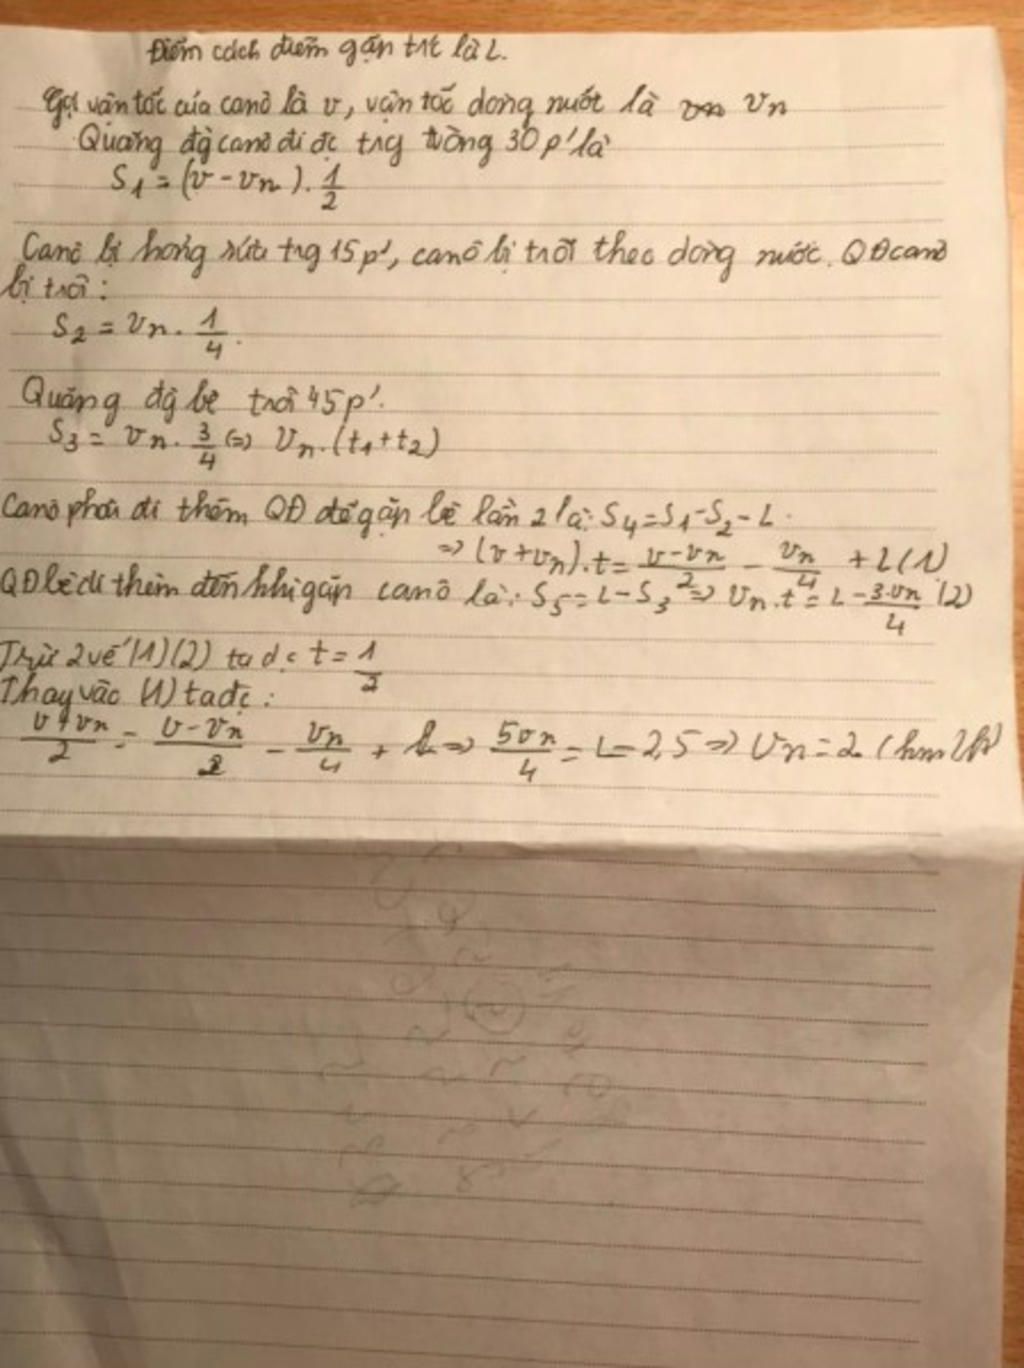 Điểm cách điểm gặp trc là L.
Gọi vận tốc của canô là v, vận tốc dòng nước là vn
Quãng đg canô đi đc trg tường 30p' là
S1 = (v - vn). 1/2
Canô bị hỏng sửa trg 15p', canô bị trôi theo dòng nước. QĐ canô
bị trôi:
S2 = vn. 1/4.
Quãng đg bè trôi 45p'.
S3 = vn. 3/4 (=) Vn. (t1+t2)
Canô phải đi thêm QĐ để gặp bè lần 2 là: S4 = S1 - S2 - L.
=> (v + vn).t = v-vn/2 - vn/4 + L (1)
QĐ bè đi thêm đến khi gặp canô là: S5 = L - S3 => Vn.t = L - 3.vn/4 (2)
Trừ 2 vế (1)(2) ta đc t = 1/2
Thay vào (1) ta đc:
v+vn/2 = v-vn/2 - vn/4 + L => 5vn/4 = L = 2,5 => Vn = 2 (km/h)